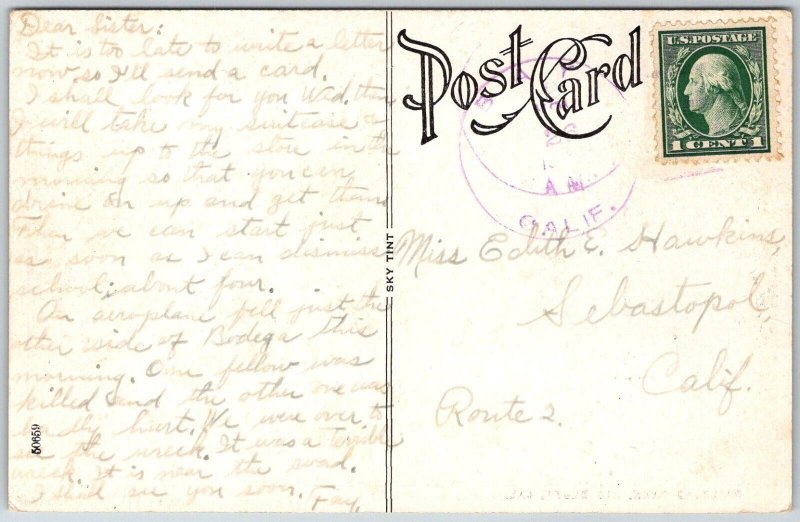 Dear Sister:
It is too late to write a letter
now so I'll send a card.
I shall look for you Wed. then
I will take my suitcase &
things up to the store in the
morning so that you can
drive on up and get them
Then we can start just
as soon as I can dismiss
school; about four.
An aeroplane fell just the
other side of Bodega this
morning. One fellow was
killed and the other one was
badly hurt. We were over to
see the wreck. It was a terrible
wreck. It is near the road.
I shall see you soon. Fay.
50659
SKY TINT
Post Card
A.M.
CALIF.
U.S. POSTAGE
1 CENT 1
Miss Edith E. Hawkins,
Sebastopol,
Calif.
Route 2.